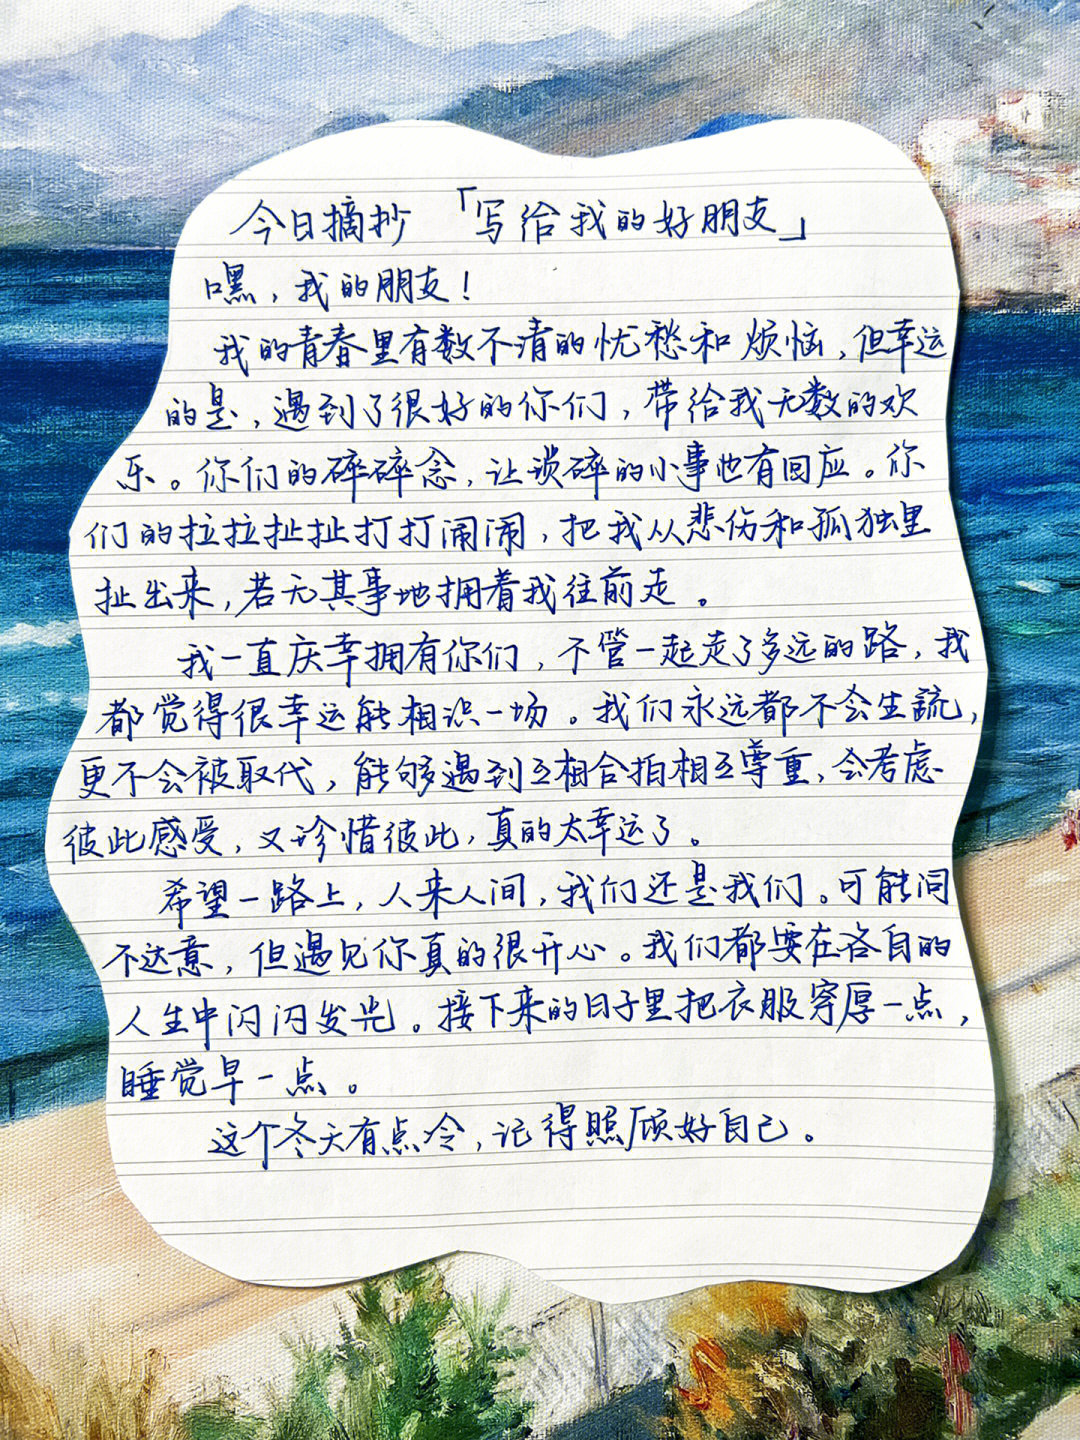 今日摘抄 「写给我的好朋友」
嘿，我的朋友！
我的青春里有数不清的忧愁和烦恼，但幸运
的是，遇到了很好的你们，带给我无数的欢
乐。你们的碎碎念，让琐碎的小事也有回应。你
们的拉拉扯扯打打闹闹，把我从悲伤和孤独里
扯出来，若无其事地拥着我往前走。
我一直庆幸拥有你们，不管一起走了多远的路，我
都觉得很幸运能相识一场。我们永远都不会生疏，
更不会被取代，能够遇到互相合拍相互尊重，会考虑
彼此感受，又珍惜彼此，真的太幸运了。
希望一路上，人来人间，我们还是我们。可能词
不达意，但遇见你真的很开心。我们都要在各自的
人生中闪闪发光。接下来的日子里把衣服穿厚一点，
睡觉早一点。
这个冬天有点冷，记得照顾好自己。